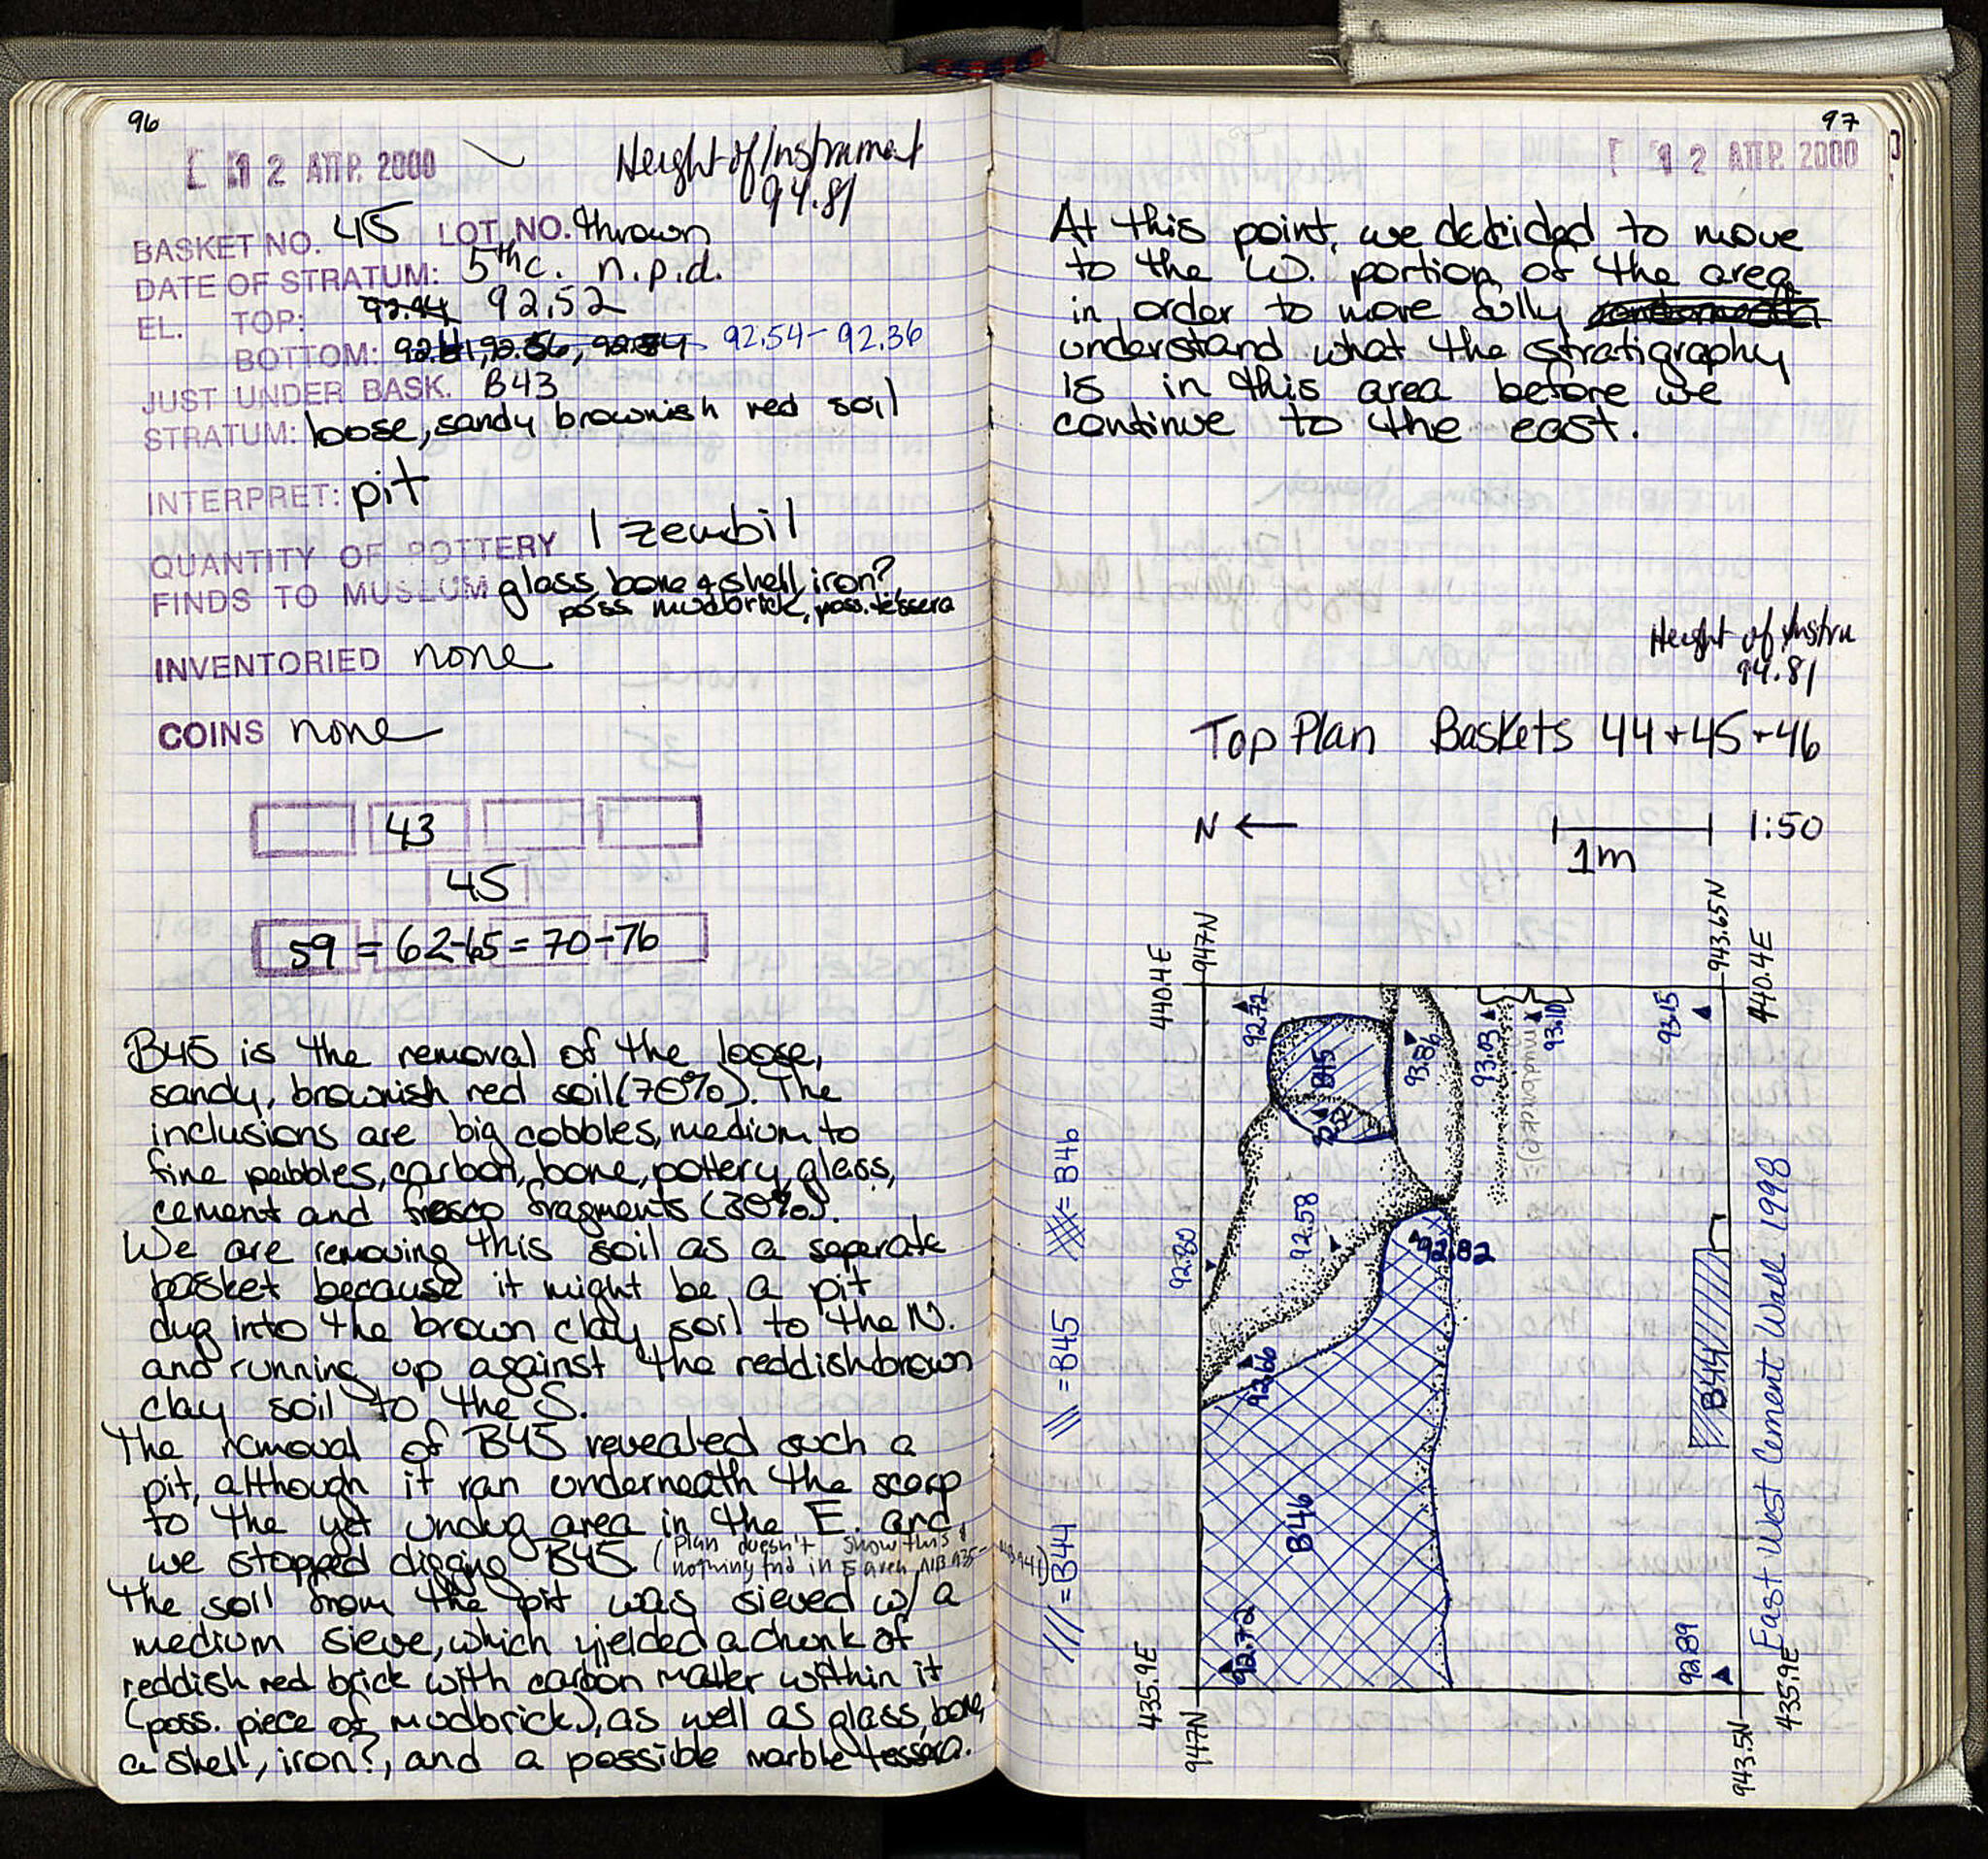 96
12 ΑΠΡ. 2000
Height of Instrument
94.81
BASKET NO. 45 LOT NO. thrown
DATE OF STRATUM: 5th c. n.p.d.
EL. TOP: 92.52
BOTTOM: 92.54 - 92.36
JUST UNDER BASK. B43
STRATUM: loose, sandy brownish red soil
INTERPRET: pit
QUANTITY OF POTTERY 1 zembil
FINDS TO MUSEUM glass, bone + shell, iron?,
poss mudbrick, poss. tessera
INVENTORIED none
COINS none
43
45
59 = 62-65 = 70-76
B45 is the removal of the loose,
sandy, brownish red soil (70%). The
inclusions are big cobbles, medium to
fine pebbles, carbon, bone, pottery, glass,
cement and fresco fragments (30%).
We are removing this soil as a separate
basket because it might be a pit
dug into the brown clay soil to the N.
and running up against the reddish brown
clay soil to the S.
The removal of B45 revealed such a
pit, although it ran underneath the scarp
to the yet undug area in the E. and
we stopped digging B45. (Plan doesn't show this &
nothing fnd in E area
The soil from the pit was sieved w/ a
medium sieve, which yjelded a chunk of
reddish red brick with carbon matter within it
(poss. piece of mudbrick), as well as glass, bone,
a shell, iron?, and a possible marble tessera.
97
12 ΑΠΡ. 2000
At this point, we decided to move
to the W. portion of the area
in order to more fully
understand what the stratigraphy
is in this area before we
continue to the east.
Height of Instru
94.81
Top Plan Baskets 44 + 45 + 46
N
1m
1:50
440.4E
947N
943.65N
440.4E
92.72
B45
92.52
93.86
93.03
(mudbrick?)
93.10
93.15
92.80
92.58
92.82
92.66
B44
B46
92.72
92.89
East West Cement Wall 1998
= B46
= B45
= B44
435.9E
947N
943.5N
435.9E